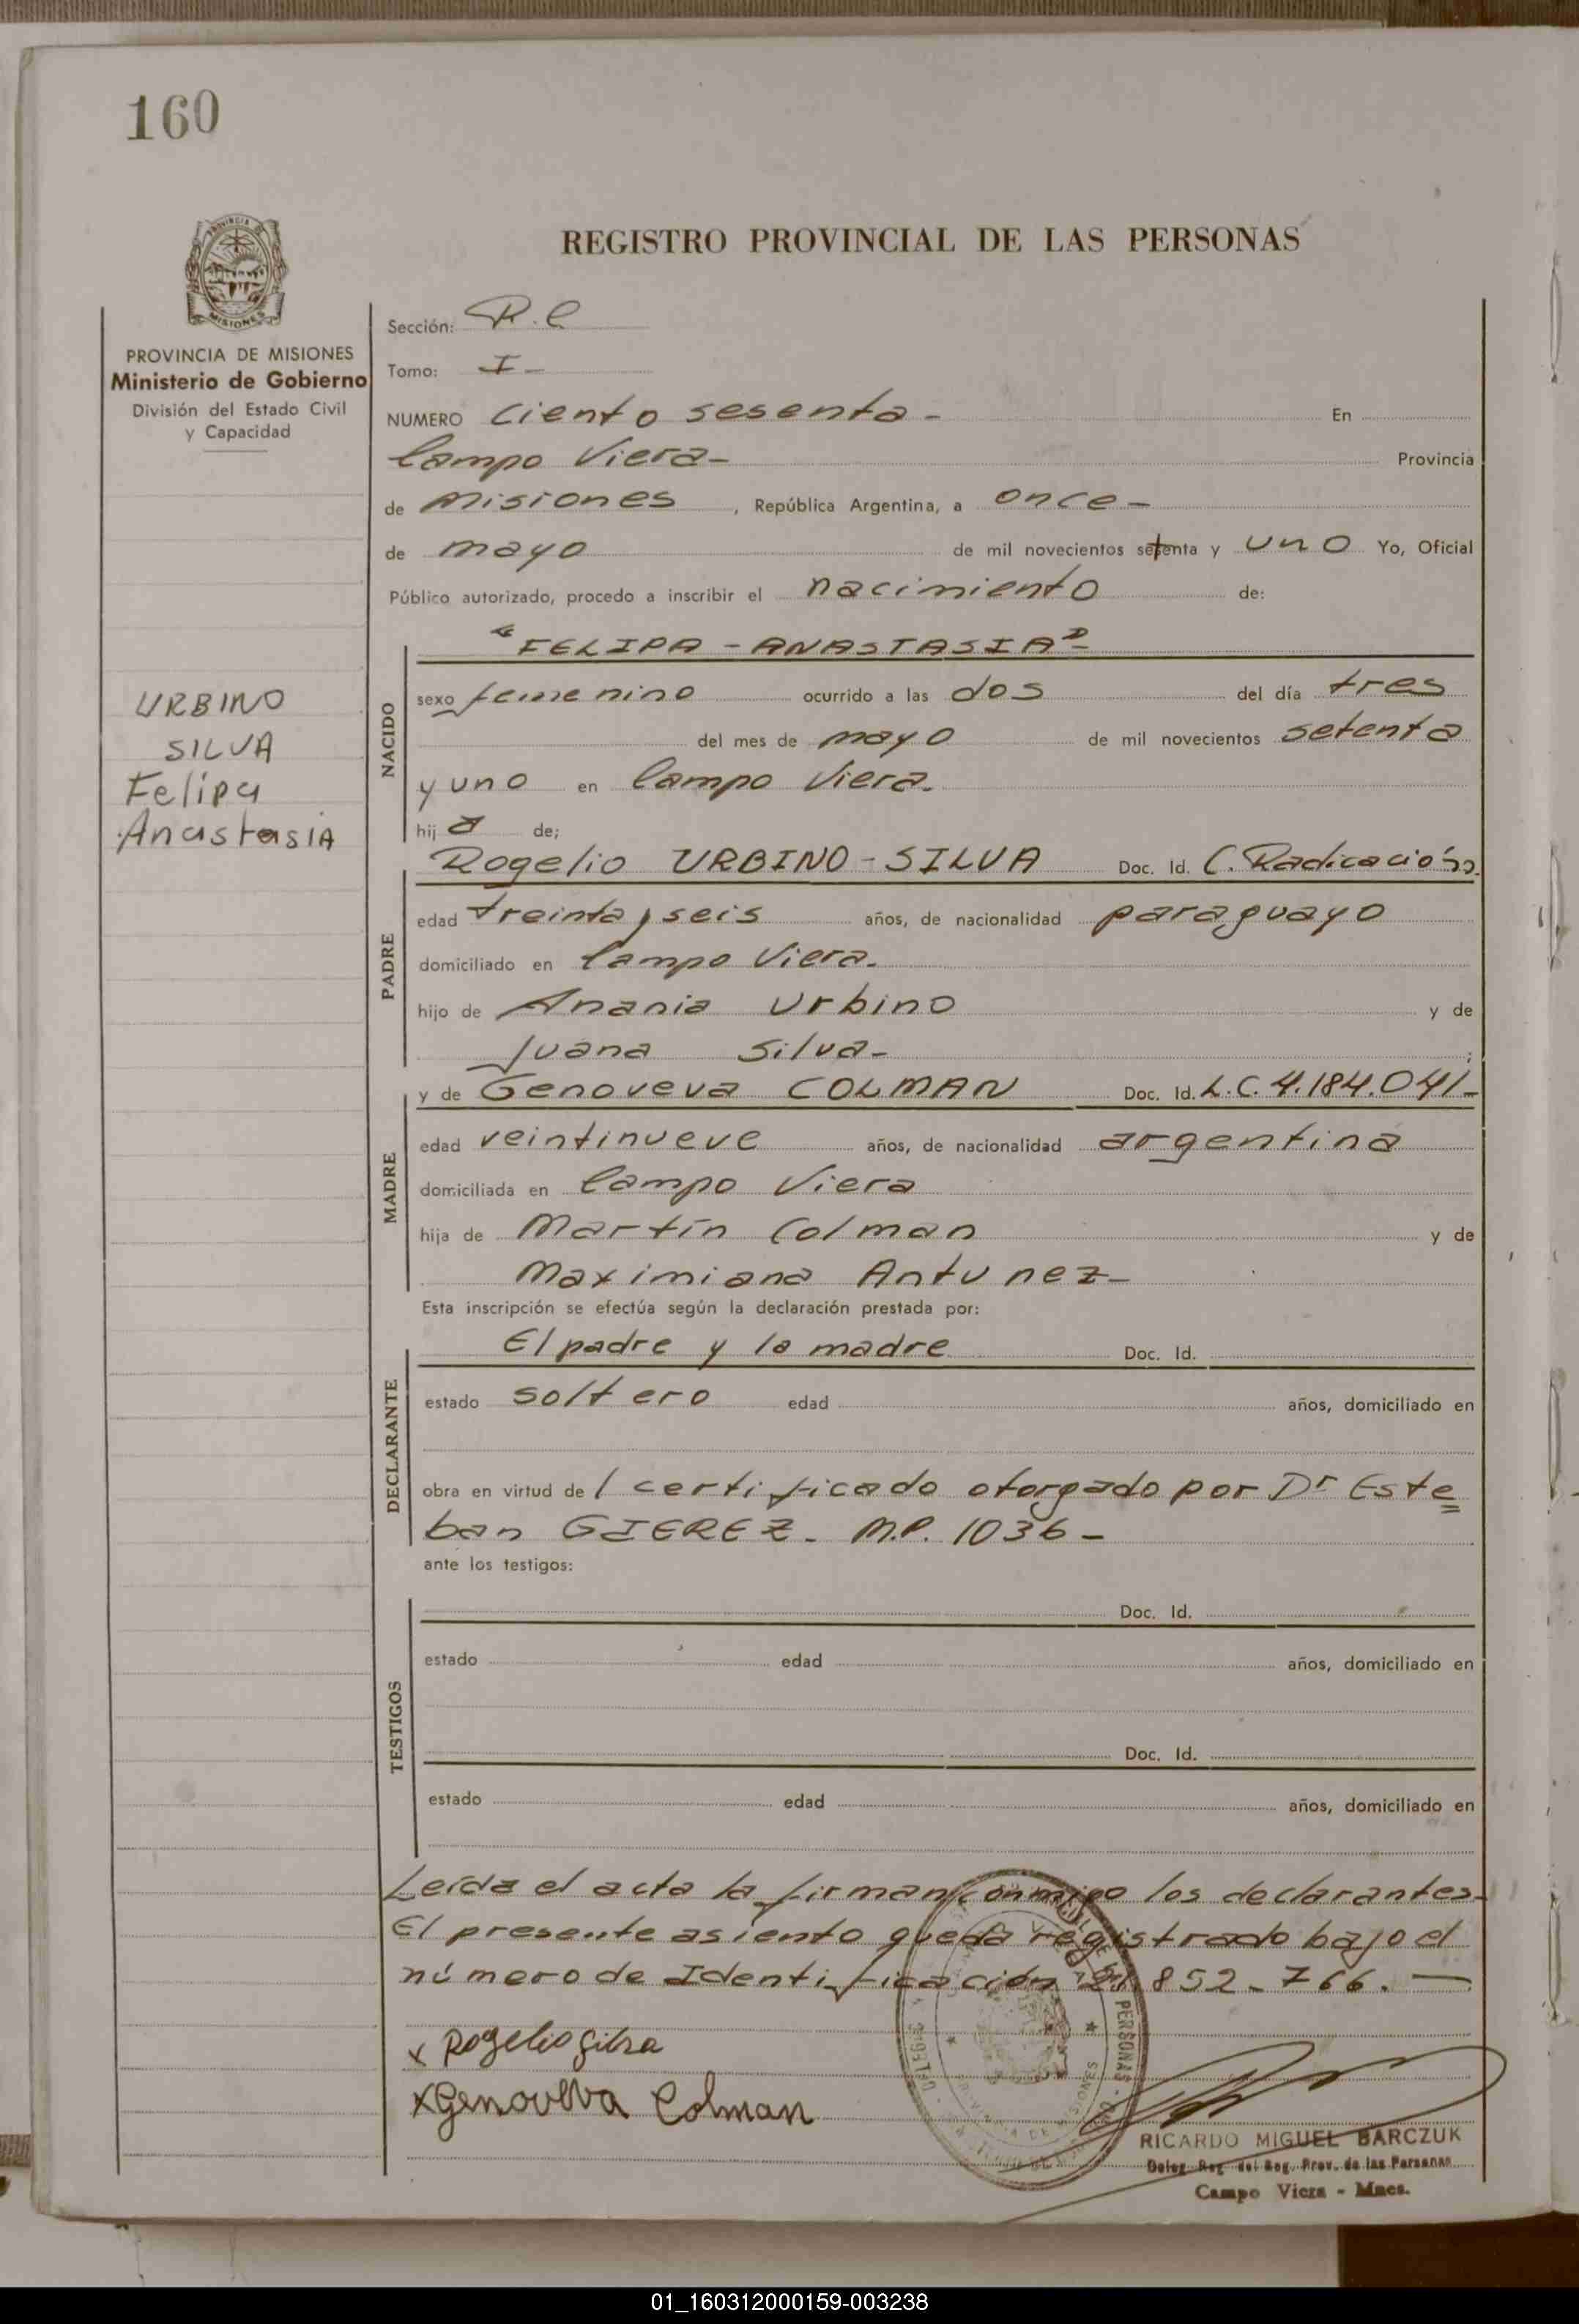 160
REGISTRO PROVINCIAL DE LAS PERSONAS
MISIONES
PROVINCIA DE MISIONES
Ministerio de Gobierno
División del Estado Civil
y Capacidad
URBINO
SILVA
Felipa
Anastasia
Sección: R.C
Tomo: I-
NUMERO Ciento sesenta - En
Campo Viera- Provincia
de Misiones, República Argentina, a once-
de mayo de mil novecientos setenta y uno Yo, Oficial
Público autorizado, procedo a inscribir el nacimiento de:
"FELIPA - ANASTASIA"-
NACIDO
sexo femenino ocurrido a las dos del día tres
del mes de mayo de mil novecientos setenta
y uno en Campo Viera.
hija de;
Rogelio URBINO - SILVA Doc. Id. C. Radicación.
PADRE
edad treinta y seis años, de nacionalidad paraguayo
domiciliado en Campo Viera.
hijo de Anania Urbino y de
Juana Silva- ;
y de Genoveva COLMAN Doc. Id. L.C. 4.184.041-
MADRE
edad veintinueve años, de nacionalidad argentina
domiciliada en Campo Viera
hija de Martín Colman y de
Maximiana Antunez-
Esta inscripción se efectúa según la declaración prestada por:
El padre y la madre Doc. Id.
DECLARANTE
estado soltero edad años, domiciliado en
obra en virtud del certificado otorgado por Dr Este=
ban GIEREZ. M.P. 1036-
ante los testigos:
TESTIGOS
Doc. Id.
estado edad años, domiciliado en
Doc. Id.
estado edad años, domiciliado en
Leída el acta la firman conmigo los declarantes-
El presente asiento queda registrado bajo el
número de Identificación 21.852-766.-
x Rogelio Silva
x Genoveva Colman
PERSONAS
PROVINCIA DE MISIONES
RICARDO MIGUEL BARCZUK
Deleg. Reg. del Reg. Prov. de las Personas
Campo Viera - Mnes.
01_160312000159-003238